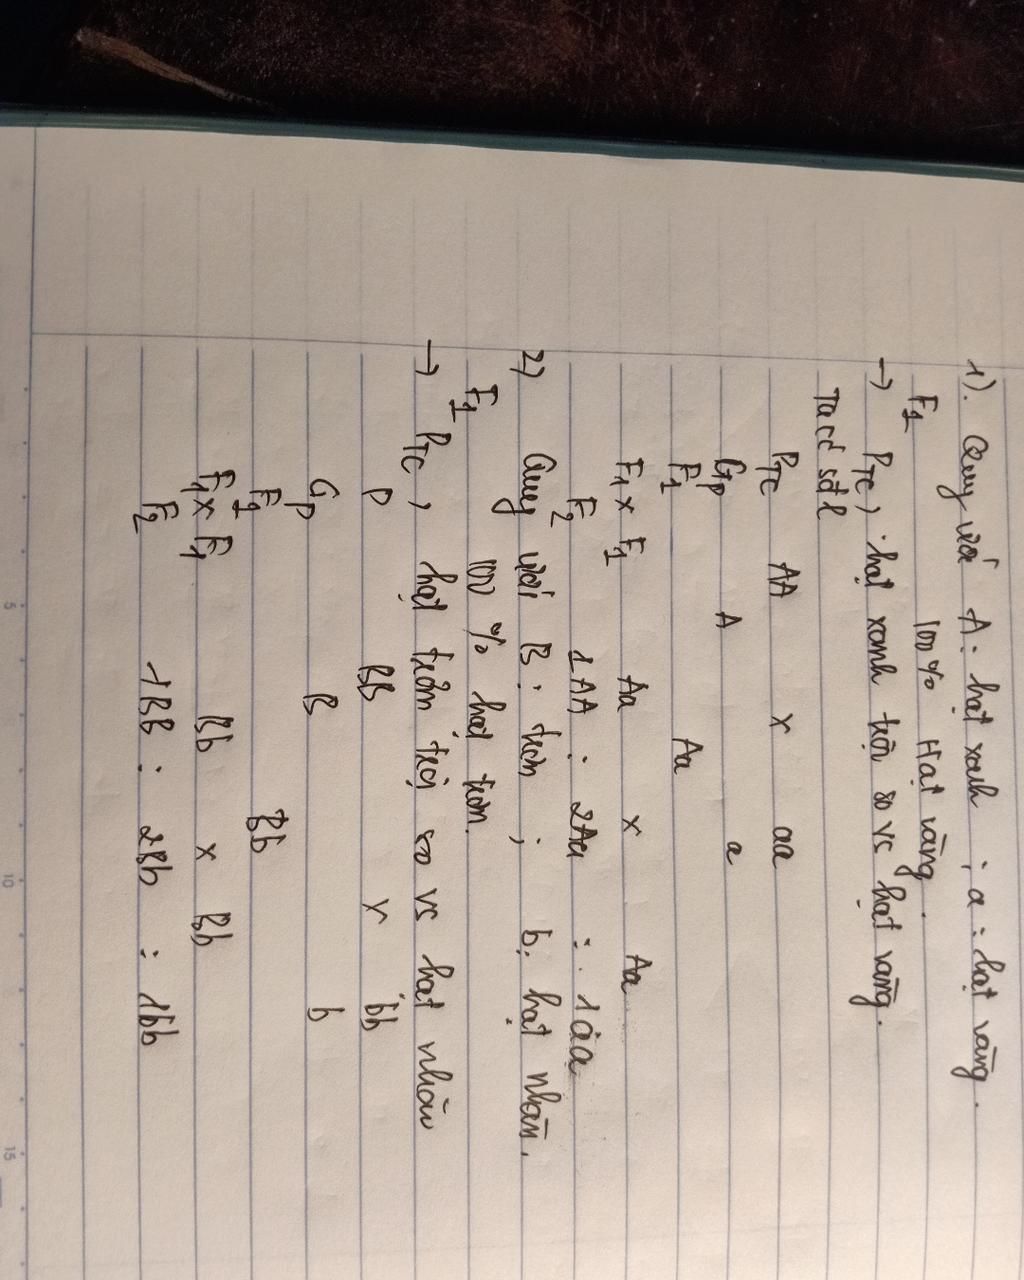 1). Quy ước A: hạt xanh ; a: hạt vàng.
F1 100% Hạt vàng.
→ PTC, hạt xanh trội so vs hạt vàng.
Ta có sđl
PTC AA x aa
GP A a
F1 Aa
F1 x F1 Aa x Aa
F2 1AA : 2Aa : 1aa
2) Quy ước B: trơn ; b: hạt nhăn.
F1 100 % hạt trơn.
→ PTC, hạt trơn trội so vs hạt nhăn
P BB x bb
GP B b
F1 Bb
F1 x F1 Bb x Bb
F2 1BB : 2Bb : 1bb
5 10 15